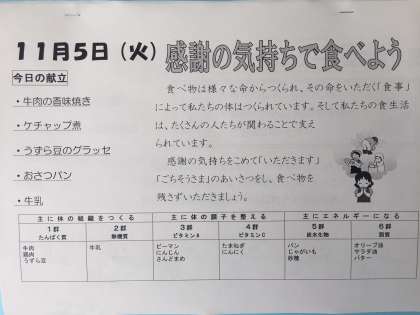 11月5日（火）
感謝の気持ちで食べよう
今日の献立
・牛肉の香味焼き
・ケチャップ煮
・うずら豆のグラッセ
・おさつパン
・牛乳
食べ物は様々な命からつくられ、その命をいただく「食事」
によって私たちの体はつくられています。そして私たちの食生活
は、たくさんの人たちが関わることで支え
られています。
感謝の気持ちをこめて「いただきます」
「ごちそうさま」のあいさつをし、食べ物を
残さずいただきましょう。
主に体の組織をつくる 主に体の調子を整える 主にエネルギーになる
1群 2群 3群 4群 5群 6群
たんぱく質 無機質 ビタミンA ビタミンC 炭水化物 脂質
牛肉 牛乳 ピーマン たまねぎ パン オリーブ油
鶏肉 にんじん にんにく じゃがいも サラダ油
うずら豆 さんどまめ 砂糖 バター